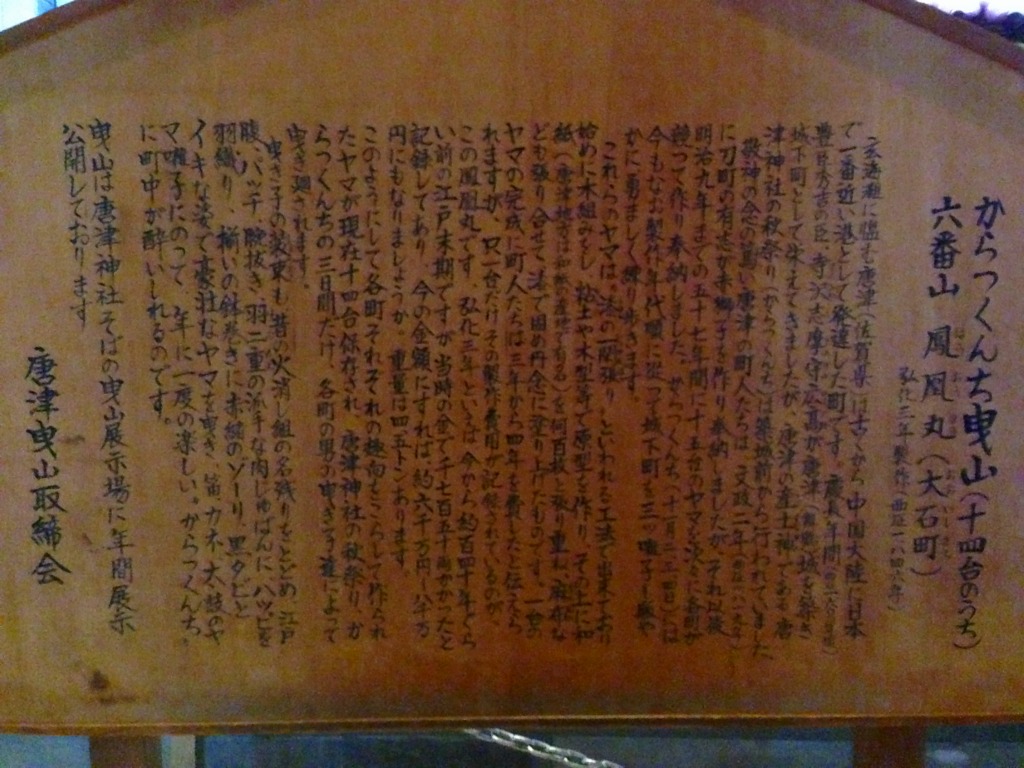 からつくんち曳山(十四台のうち)
六番山 鳳凰丸(大石町)
弘化三年製作(西暦一八四六年)
玄海灘に臨む唐津(佐賀県)は古くから中国大陸に日本
で一番近い港として発達した町です。慶長年間
豊臣秀吉の臣、寺沢志摩守広高が唐津に城を築き
城下町として栄えてきましたが、唐津の産土神である唐
津神社の秋祭り(からつくんち)は築城前から行われていました
敬神の念の篤い唐津の町人たちは、文政二年(西暦一八一九年)
に刀町の有志が赤獅子を作り奉納しましたが、それ以後
明治九年までの五十七年間に十五台のヤマを次々に各町が
競って作り奉納しました。からつくんち(十一月二、三、四日)には
今もなお製作年代順に従って城下町を三ツ囃子も賑や
かに勇ましく練り歩きます。
これらのヤマは、漆の一閑張りといわれる工法で出来ており
始めに木組みをし、粘土や木型等で原型を作り、その上に和
紙(唐津地方は和紙の産地でもある)を何百枚と張り重ね、麻布な
ども張り合せて漆で固め丹念に塗り上げたものです。一台の
ヤマの完成に町人たちは三年から四年を費したと伝えら
れますが、只一台だけその製作費用が記録されているのが、
この鳳凰丸です。弘化三年といえば、今から約百四十年ぐら
い前の江戸末期ですが当時の金で千七百五十両かかったと
記録してあり、今の金額にすれば約六千万円〜八千万
円にもなりましょうか。重量は四、五トンあります。
このようにして各町それぞれの趣向をこらして作られ
たヤマが現在十四台保存され、唐津神社の秋祭り、か
らつくんちの三日間だけ、各町の男の曳き子達によって
曳き廻されます。
曳き子の装束も昔の火消し組の名残りをとどめ、江戸
腹、パッチ、腕抜き、羽二重の派手な肉じゅばんに、ハッピを
羽織り、揃いの鉢巻きに赤緒のゾーリ、黒タビと
イキな姿で豪壮なヤマを曳き、笛、カネ、太鼓のヤ
マ囃子にのって、年に一度の楽しい。からつくんち。
に町中が酔いしれるのです。
曳山は唐津神社そばの曳山展示場に年間展示
公開しております
唐津曳山取締会